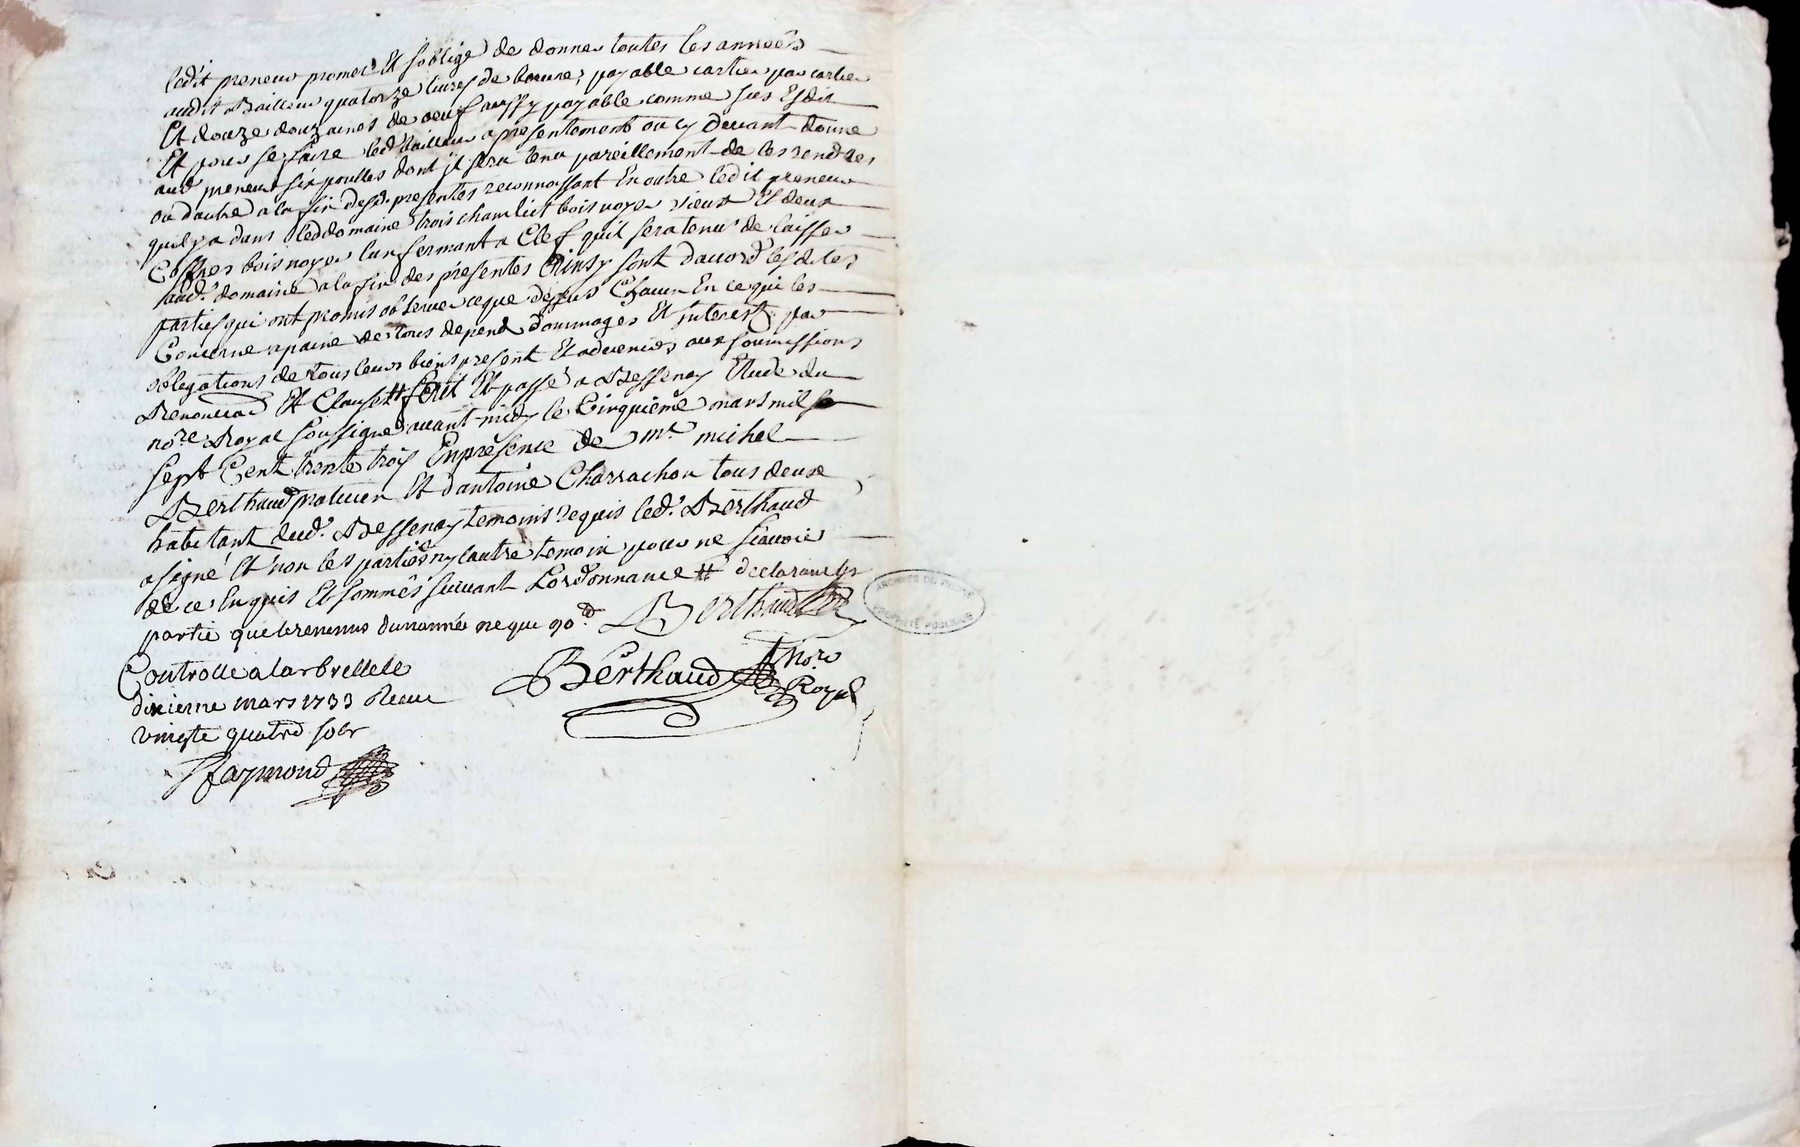 ledit preneur promet Et soblige de donner toutes les années
audit Bailleur quatorze livres de beurre, payable cartier par cartier
Et douze douzaines de oeuf aussy payable comme sus Est dit
Et pour se faire led. Bailleur a presentement ou cy devant donne
aud. preneur six poulles dont jl sera tenu pareillement de les rendres
ou dautre a la fin desd. presentes reconnoissant En outre ledit preneur
quil y a dans led domaine trois chamlict bois noyer vieux Et deux
Coffres bois noyer lun fermant a Clef quil sera tenu de laisser
aud. domaine a la fin des presentes Ainsy sont daccord lesdites
parties qui ont promis observer ce que dessus Chacun En ce qui les
Concerne a paine de tous depend dommages Et jnterest par
obligations de tous leurs biens present Et advenirs aux soumissions
Renonciaõ Et Clauses # fait Et passé a Bessenay Etude du
nore. Royal soussigné avant midy le Cinquième mars mil se
sept Cent trente trois En presence de mr. michel
Berthaud praticien Et dantoine Charrachon tous deux
habitant dud. Bessenay temoins requis led. Berthaud
a signé Et non les parties ny lautre temoin pour ne scavoir
de ce Enquis Et sommés suivant Lordonnance # declarant les
partie que le revenus dunanné ne que 90 # Berthaud
Berthaud Nore
Royal
Controlle a larbrelle le
dixieme mars 1733 Receu
vingte quatre sols
Raymond
ARCHIVES DU RHÔNE
PROPRIÉTÉ PUBLIQUE